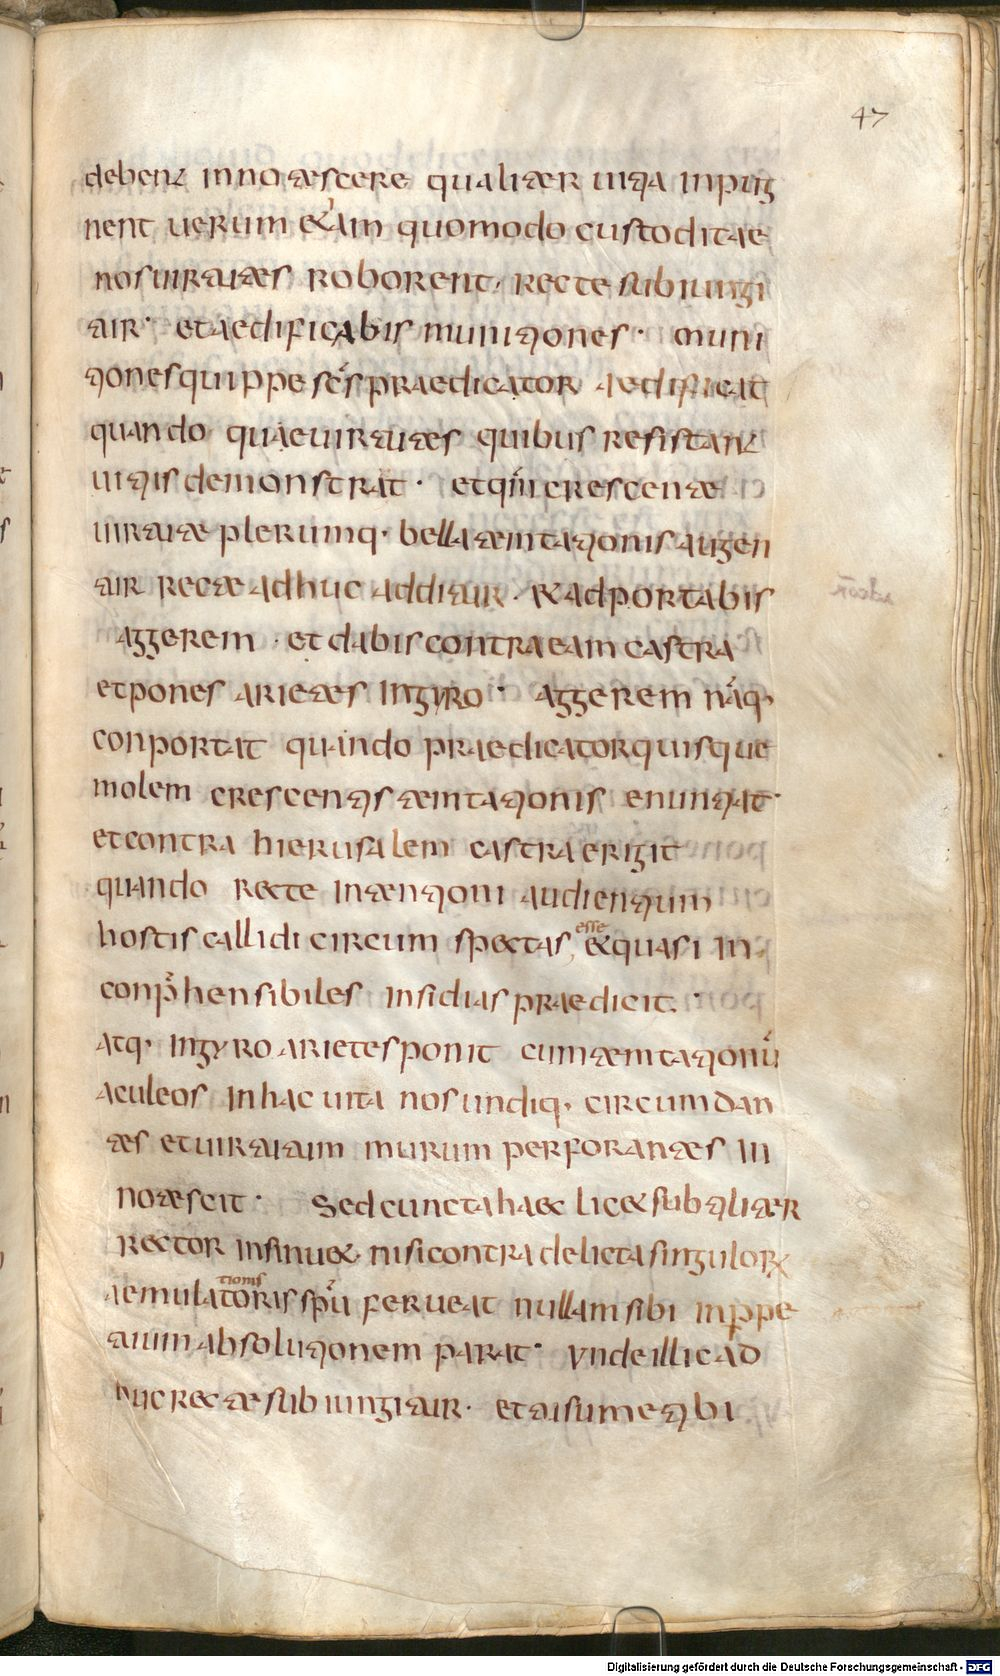 47
debent innotescere qualiter uitia inpug
nent uerum &iam quomodo custoditae
nos uirtutes roborent, recte subiungi
tur· et aedificabis munitiones· muni
tiones quippe scs praedicator aedificat
quando quae uirtutes quibus resistant
uitiis demonstrat· et qm crescente
uirtute plerumq· bella temtationis augen
tur recte adhuc additur· & adportabis
aggerem· et dabis contra eam castra
et pones arietes in gyro· aggerem naq·
conportat quando praedicator quisque
molem crescentis temtationis enuntiat·
et contra hierusalem castra erigit
quando recte intentioni audientium
hostis callidi circumspectas, esse & quasi in
conphensibiles insidias praedicit·
atq· in gyro arietes ponit cum temtationu
aculeos in hac uita nos undiq· circumdan
tes et uirtutum murum perforantes in
notescit· Sed cuncta haec lic& subtiliter
rector insinu&· nisi contra delicta singulorx
tionis
aemulatoris spu ferueat nullam sibi in ppe
tuum absolutionem parat· Unde illic ad
huc recte subiungitur· et tu sume tibi
Digitalisierung gefördert durch die Deutsche Forschungsgemeinschaft - DFG